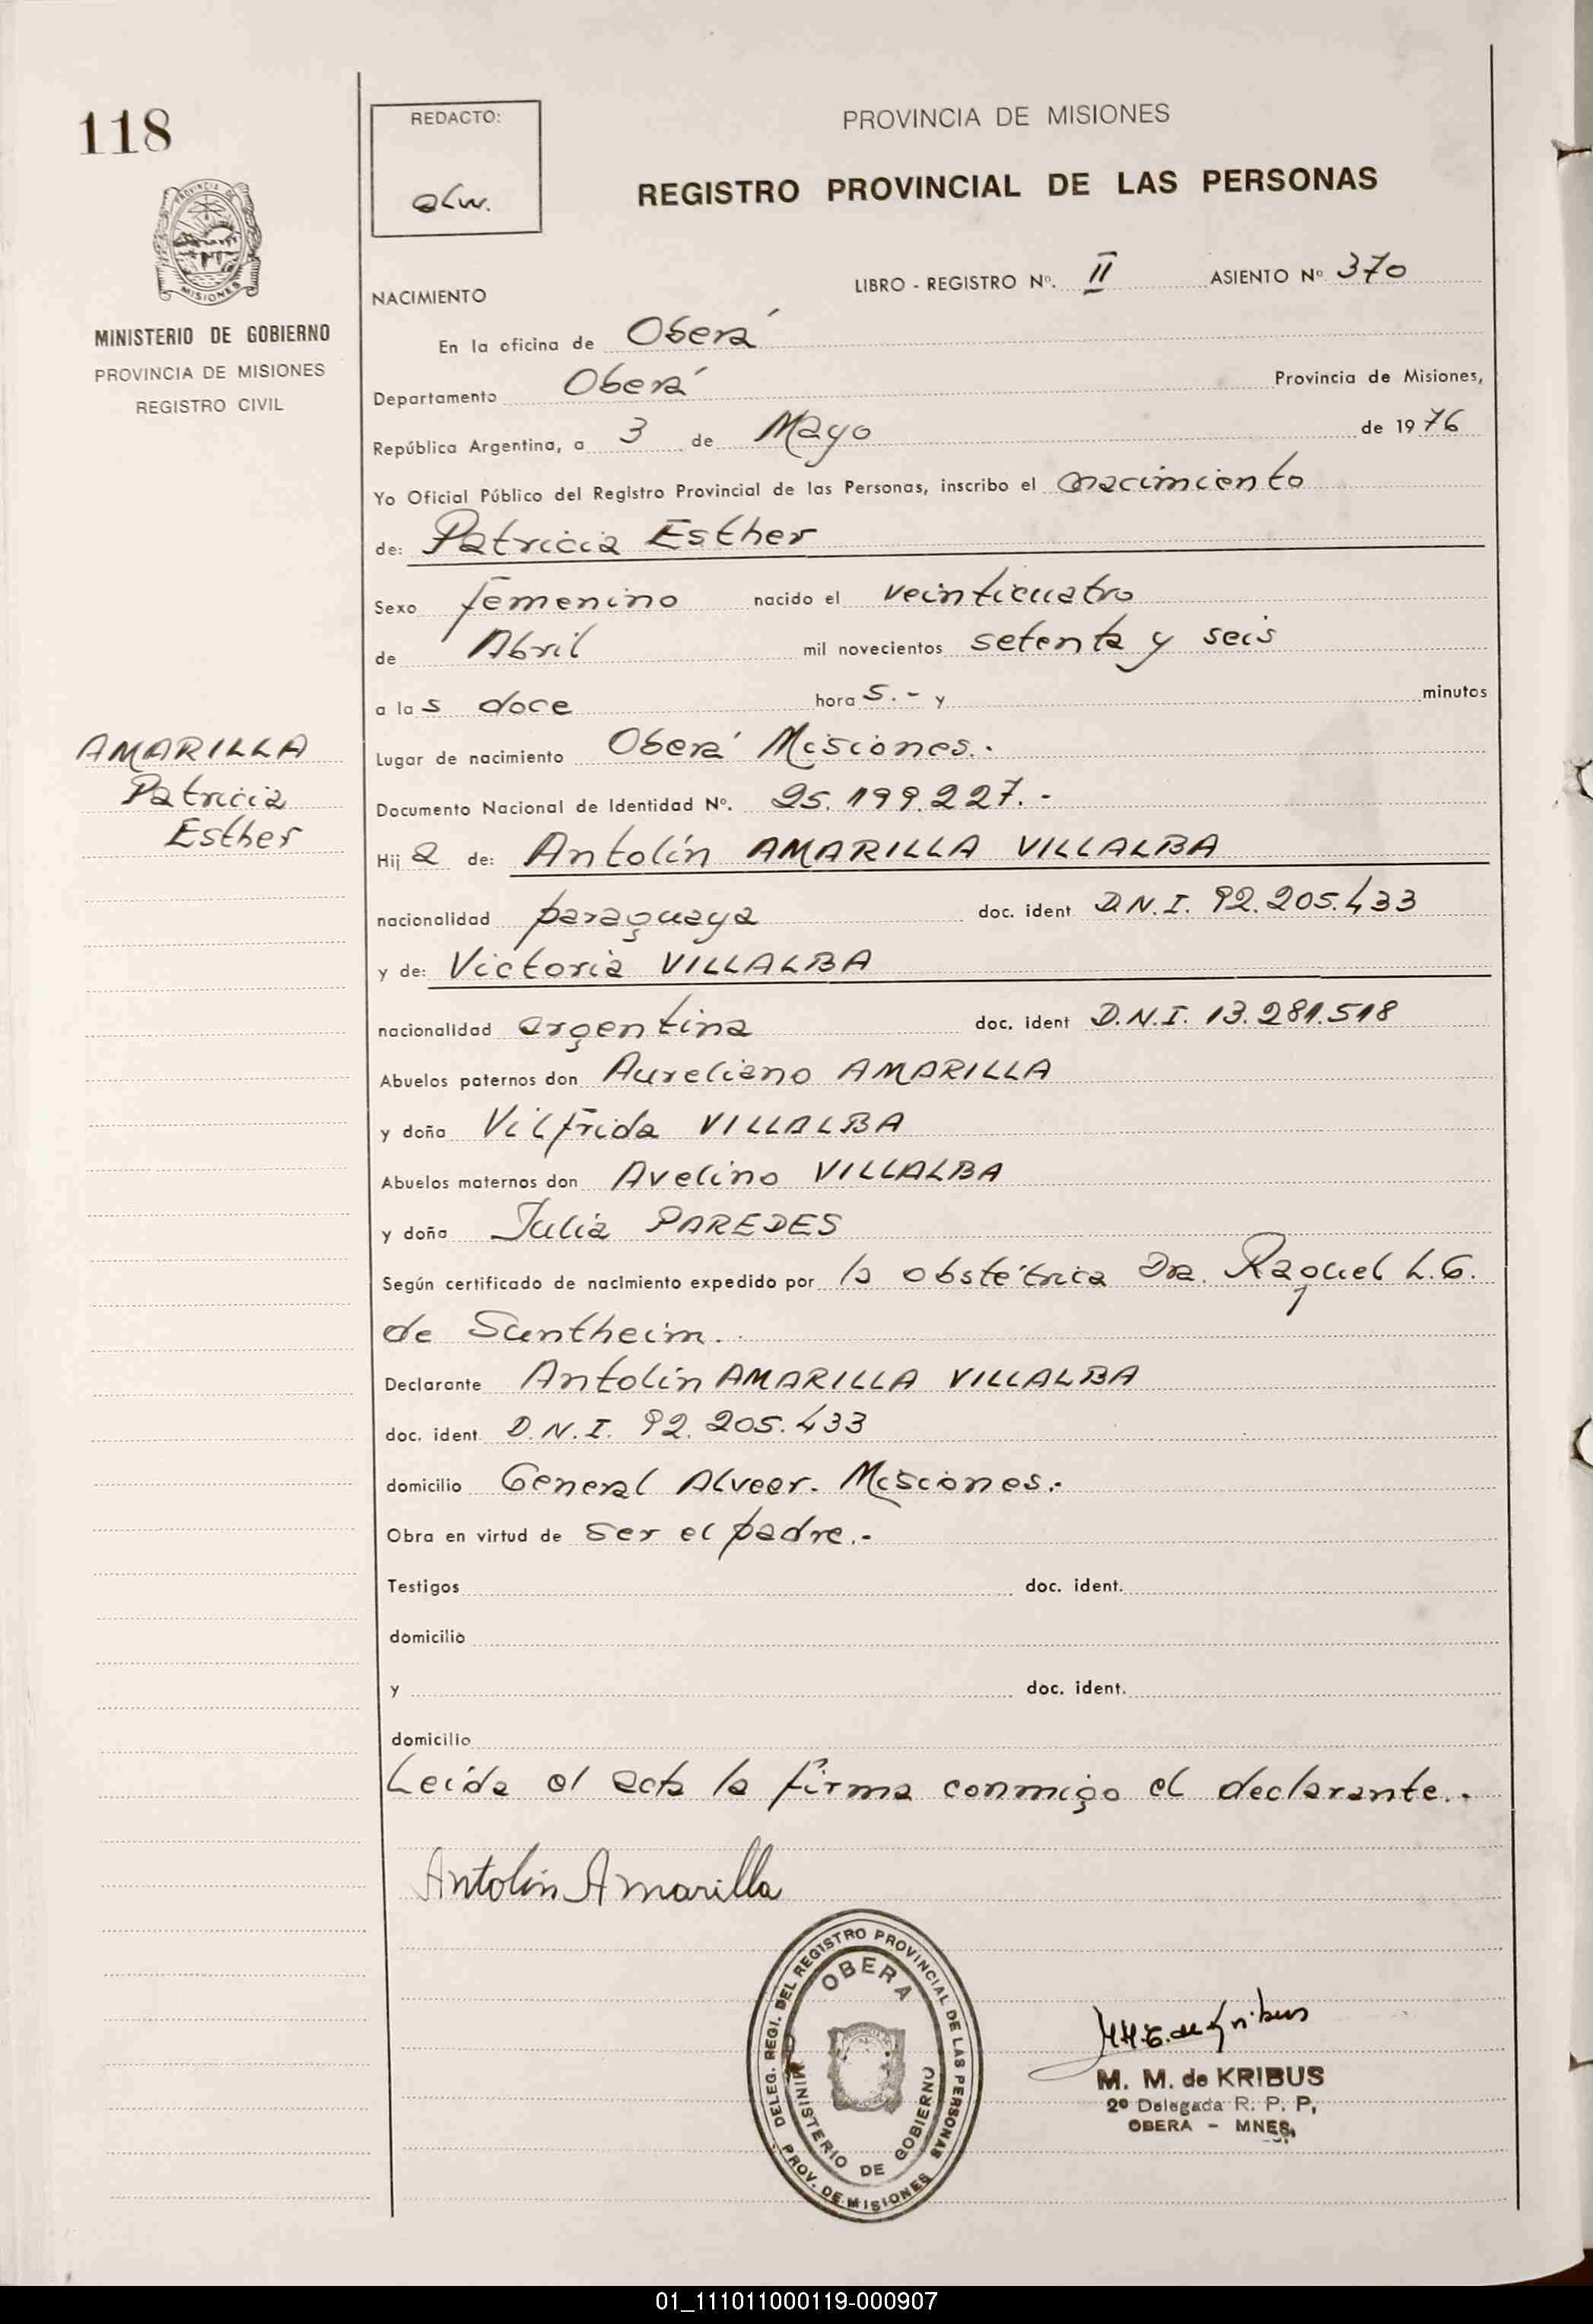 118
REDACTO:
alw.
PROVINCIA DE MISIONES
REGISTRO PROVINCIAL DE LAS PERSONAS
PROVINCIA DE
MISIONES
MINISTERIO DE GOBIERNO
PROVINCIA DE MISIONES
REGISTRO CIVIL
LIBRO - REGISTRO Nº. II ASIENTO Nº 370
NACIMIENTO
En la oficina de Oberá
Departamento Oberá Provincia de Misiones,
República Argentina, a 3 de Mayo de 1976
Yo Oficial Público del Registro Provincial de las Personas, inscribo el nacimiento
de: Patricia Esther
Sexo femenino nacido el veinticuatro
de Abril mil novecientos setenta y seis
a las doce horas.- y minutos
Lugar de nacimiento Oberá Misiones.-
Documento Nacional de Identidad Nº. 25.199.227.-
AMARILLA
Patricia
Esther
Hija de: Antolín AMARILLA VILLALBA
nacionalidad paraguaya doc. ident D.N.I. 92.205.433
y de: Victoria VILLALBA
nacionalidad argentina doc. ident D.N.I. 13.281.518
Abuelos paternos don Aureliano AMARILLA
y doña Vilfrida VILLALBA
Abuelos maternos don Avelino VILLALBA
y doña Julia PAREDES
Según certificado de nacimiento expedido por la obstétrica Dra. Raquel L.G.
de Suntheim.
Declarante Antolín AMARILLA VILLALBA
doc. ident. D.N.I. 92.205.433
domicilio General Alvear. Misiones.-
Obra en virtud de ser el padre.-
Testigos doc. ident.
domicilio
y doc. ident.
domicilio
Leída el acta la firma conmigo el declarante.-
Antolin Amarilla
DELEG. REGI. DEL REGISTRO PROVINCIAL DE LAS PERSONAS
PROV. DE MISIONES
OBERA
MINISTERIO DE GOBIERNO
M. M. de KRIBUS
2º Delegada R. P. P,
OBERA - MNES,
01_111011000119-000907